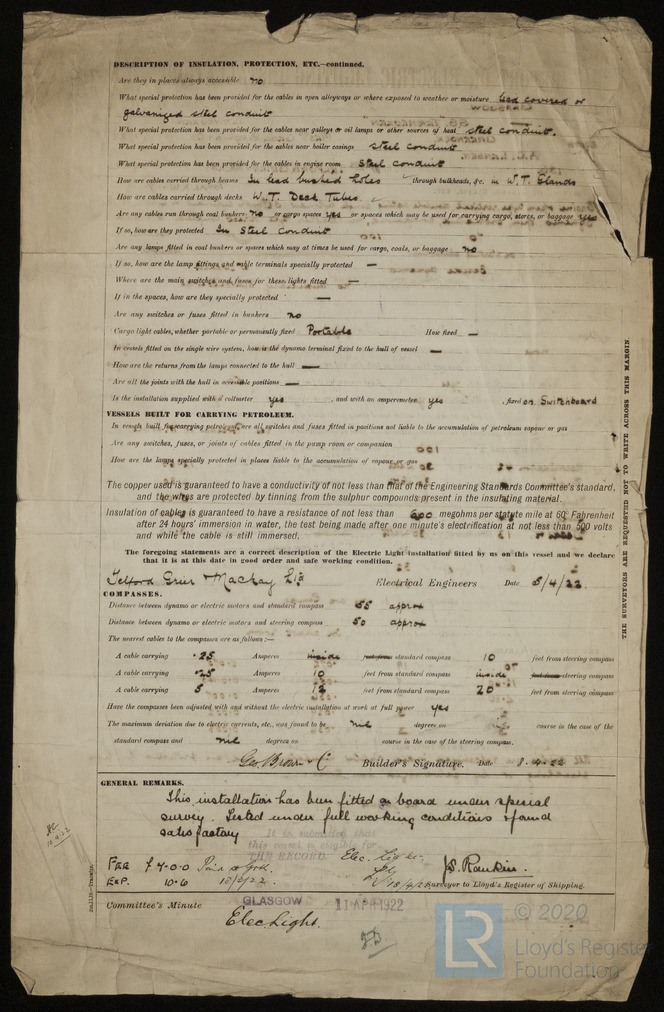 DESCRIPTION OF INSULATION, PROTECTION, ETC.—continued.
Are they in places always accessible no
What special protection has been provided for the cables in open alleyways or where exposed to weather or moisture lead covered or
galvanized steel conduit
What special protection has been provided for the cables near galleys or oil lamps or other sources of heat steel conduit.
What special protection has been provided for the cables near boiler casings steel conduit
What special protection has been provided for the cables in engine room steel conduit
How are cables carried through beams In lead bushed holes through bulkheads, &c. in W.T. Glands
How are cables carried through decks W.T. Deck Tubes.
Are any cables run through coal bunkers no or cargo spaces yes or spaces which may be used for carrying cargo, stores, or baggage yes
If so, how are they protected In Steel Conduit
Are any lamps fitted in coal bunkers or spaces which may at times be used for cargo, coals, or baggage no
If so, how are the lamp fittings and cable terminals specially protected —
Where are the main switches and fuses for these lights fitted —
If in the spaces, how are they specially protected —
Are any switches or fuses fitted in bunkers no
Cargo light cables, whether portable or permanently fixed Portable How fixed —
In vessels fitted on the single wire system, how is the dynamo terminal fixed to the hull of vessel —
How are the returns from the lamps connected to the hull —
Are all the joints with the hull in accessible positions —
Is the installation supplied with a voltmeter yes , and with an amperemeter yes , fixed on Switchboard
VESSELS BUILT FOR CARRYING PETROLEUM.
In vessels built for carrying petroleum, are all switches and fuses fitted in positions not liable to the accumulation of petroleum vapour or gas
Are any switches, fuses, or joints of cables fitted in the pump room or companion
How are the lamps specially protected in places liable to the accumulation of vapour or gas
The copper used is guaranteed to have a conductivity of not less than that of the Engineering Standards Committee's standard,
and the wires are protected by tinning from the sulphur compounds present in the insulating material.
Insulation of cables is guaranteed to have a resistance of not less than 600 megohms per statute mile at 60° Fahrenheit
after 24 hours' immersion in water, the test being made after one minute's electrification at not less than 500 volts
and while the cable is still immersed.
The foregoing statements are a correct description of the Electric Light installation fitted by us on this vessel and we declare
that it is at this date in good order and safe working condition.
Telford Grier & Mackay Ltd Electrical Engineers Date 5/4/22
COMPASSES.
Distance between dynamo or electric motors and standard compass 55 approx
Distance between dynamo or electric motors and steering compass 50 approx
The nearest cables to the compasses are as follows:—
A cable carrying .25 Amperes inside feet from standard compass 10 feet from steering compass
A cable carrying .25 Amperes 10 feet from standard compass inside feet from steering compass
A cable carrying 5 Amperes 12 feet from standard compass 20 feet from steering compass
Have the compasses been adjusted with and without the electric installation at work at full power yes
The maximum deviation due to electric currents, etc., was found to be nil degrees on course in the case of the
standard compass and nil degrees on course in the case of the steering compass.
Geo. Brown & Co Builder's Signature. Date 8.4.22
GENERAL REMARKS.
This installation has been fitted on board under special
survey. Tested under full working conditions & found
satisfactory
It is submitted that
this vessel is eligible for
THE RECORD. Elec. Light.
Fee £7-0-0
Exp. 10-6
J.S. Rankin.
Surveyor to Lloyd's Register of Shipping.
Committee's Minute GLASGOW 11 APR 1922
Elec. Light.
THE SURVEYORS ARE REQUESTED NOT TO WRITE ACROSS THIS MARGIN.
LR © 2020
Lloyd's Register
Foundation